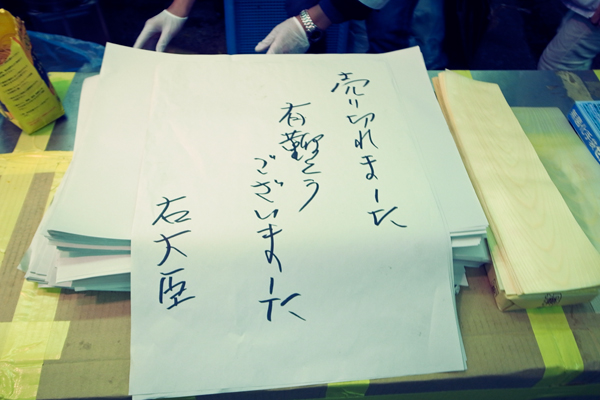 売り切れました
有難とう
ございました
右大臣